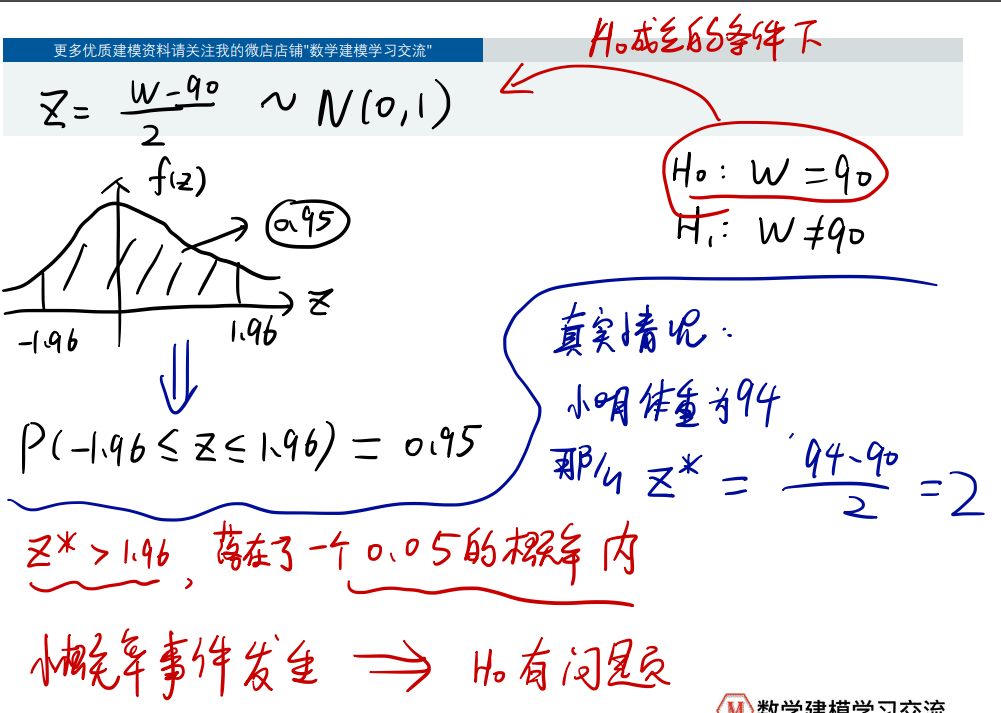 H₀成立的条件下
更多优质建模资料请关注我的微店店铺"数学建模学习交流"
Z = (W-90)/2 ~ N(0,1)
H₀: W = 90
H₁: W ≠ 90
f(z)
0.95
z
-1.96
1.96
P(-1.96 ≤ z ≤ 1.96) = 0.95
真实情况:
小明体重为94
那么 z* = (94-90)/2 = 2
z* > 1.96, 落在了一个0.05的概率内
小概率事件发生 ⇒ H₀有问题
数学建模学习交流